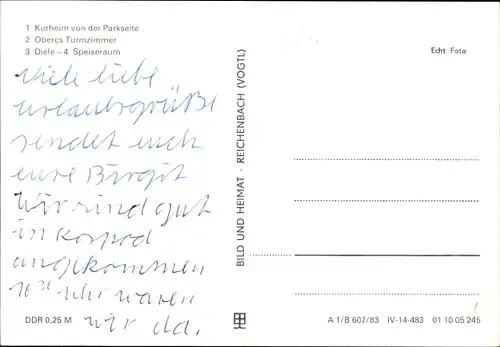 1 Kurheim von der Parkseite
2 Oberes Turmzimmer
3 Diele – 4 Speiseraum
Viele liebe
Urlaubsgrüße
sendet euch
eure Birgit
Wir sind gut
in Korpod
angekommen
10³⁰ Uhr waren
wir da.
DDR 0,25 M
BILD UND HEIMAT · REICHENBACH (VOGTL)
Echt Foto
A 1/B 607/83 IV-14-483 01 10 05 245